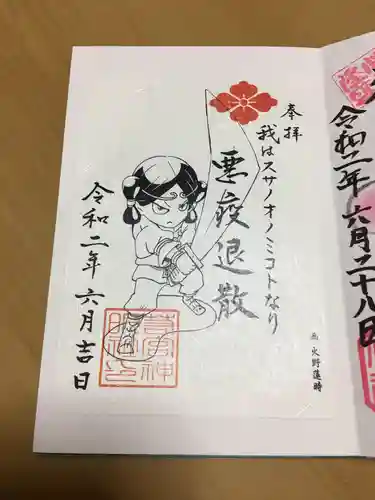 奉拝
我はスサノオノミコトなり
悪疫退散
画 火野蓮時
令和二年 六月吉日
令和二年 六月二十八日